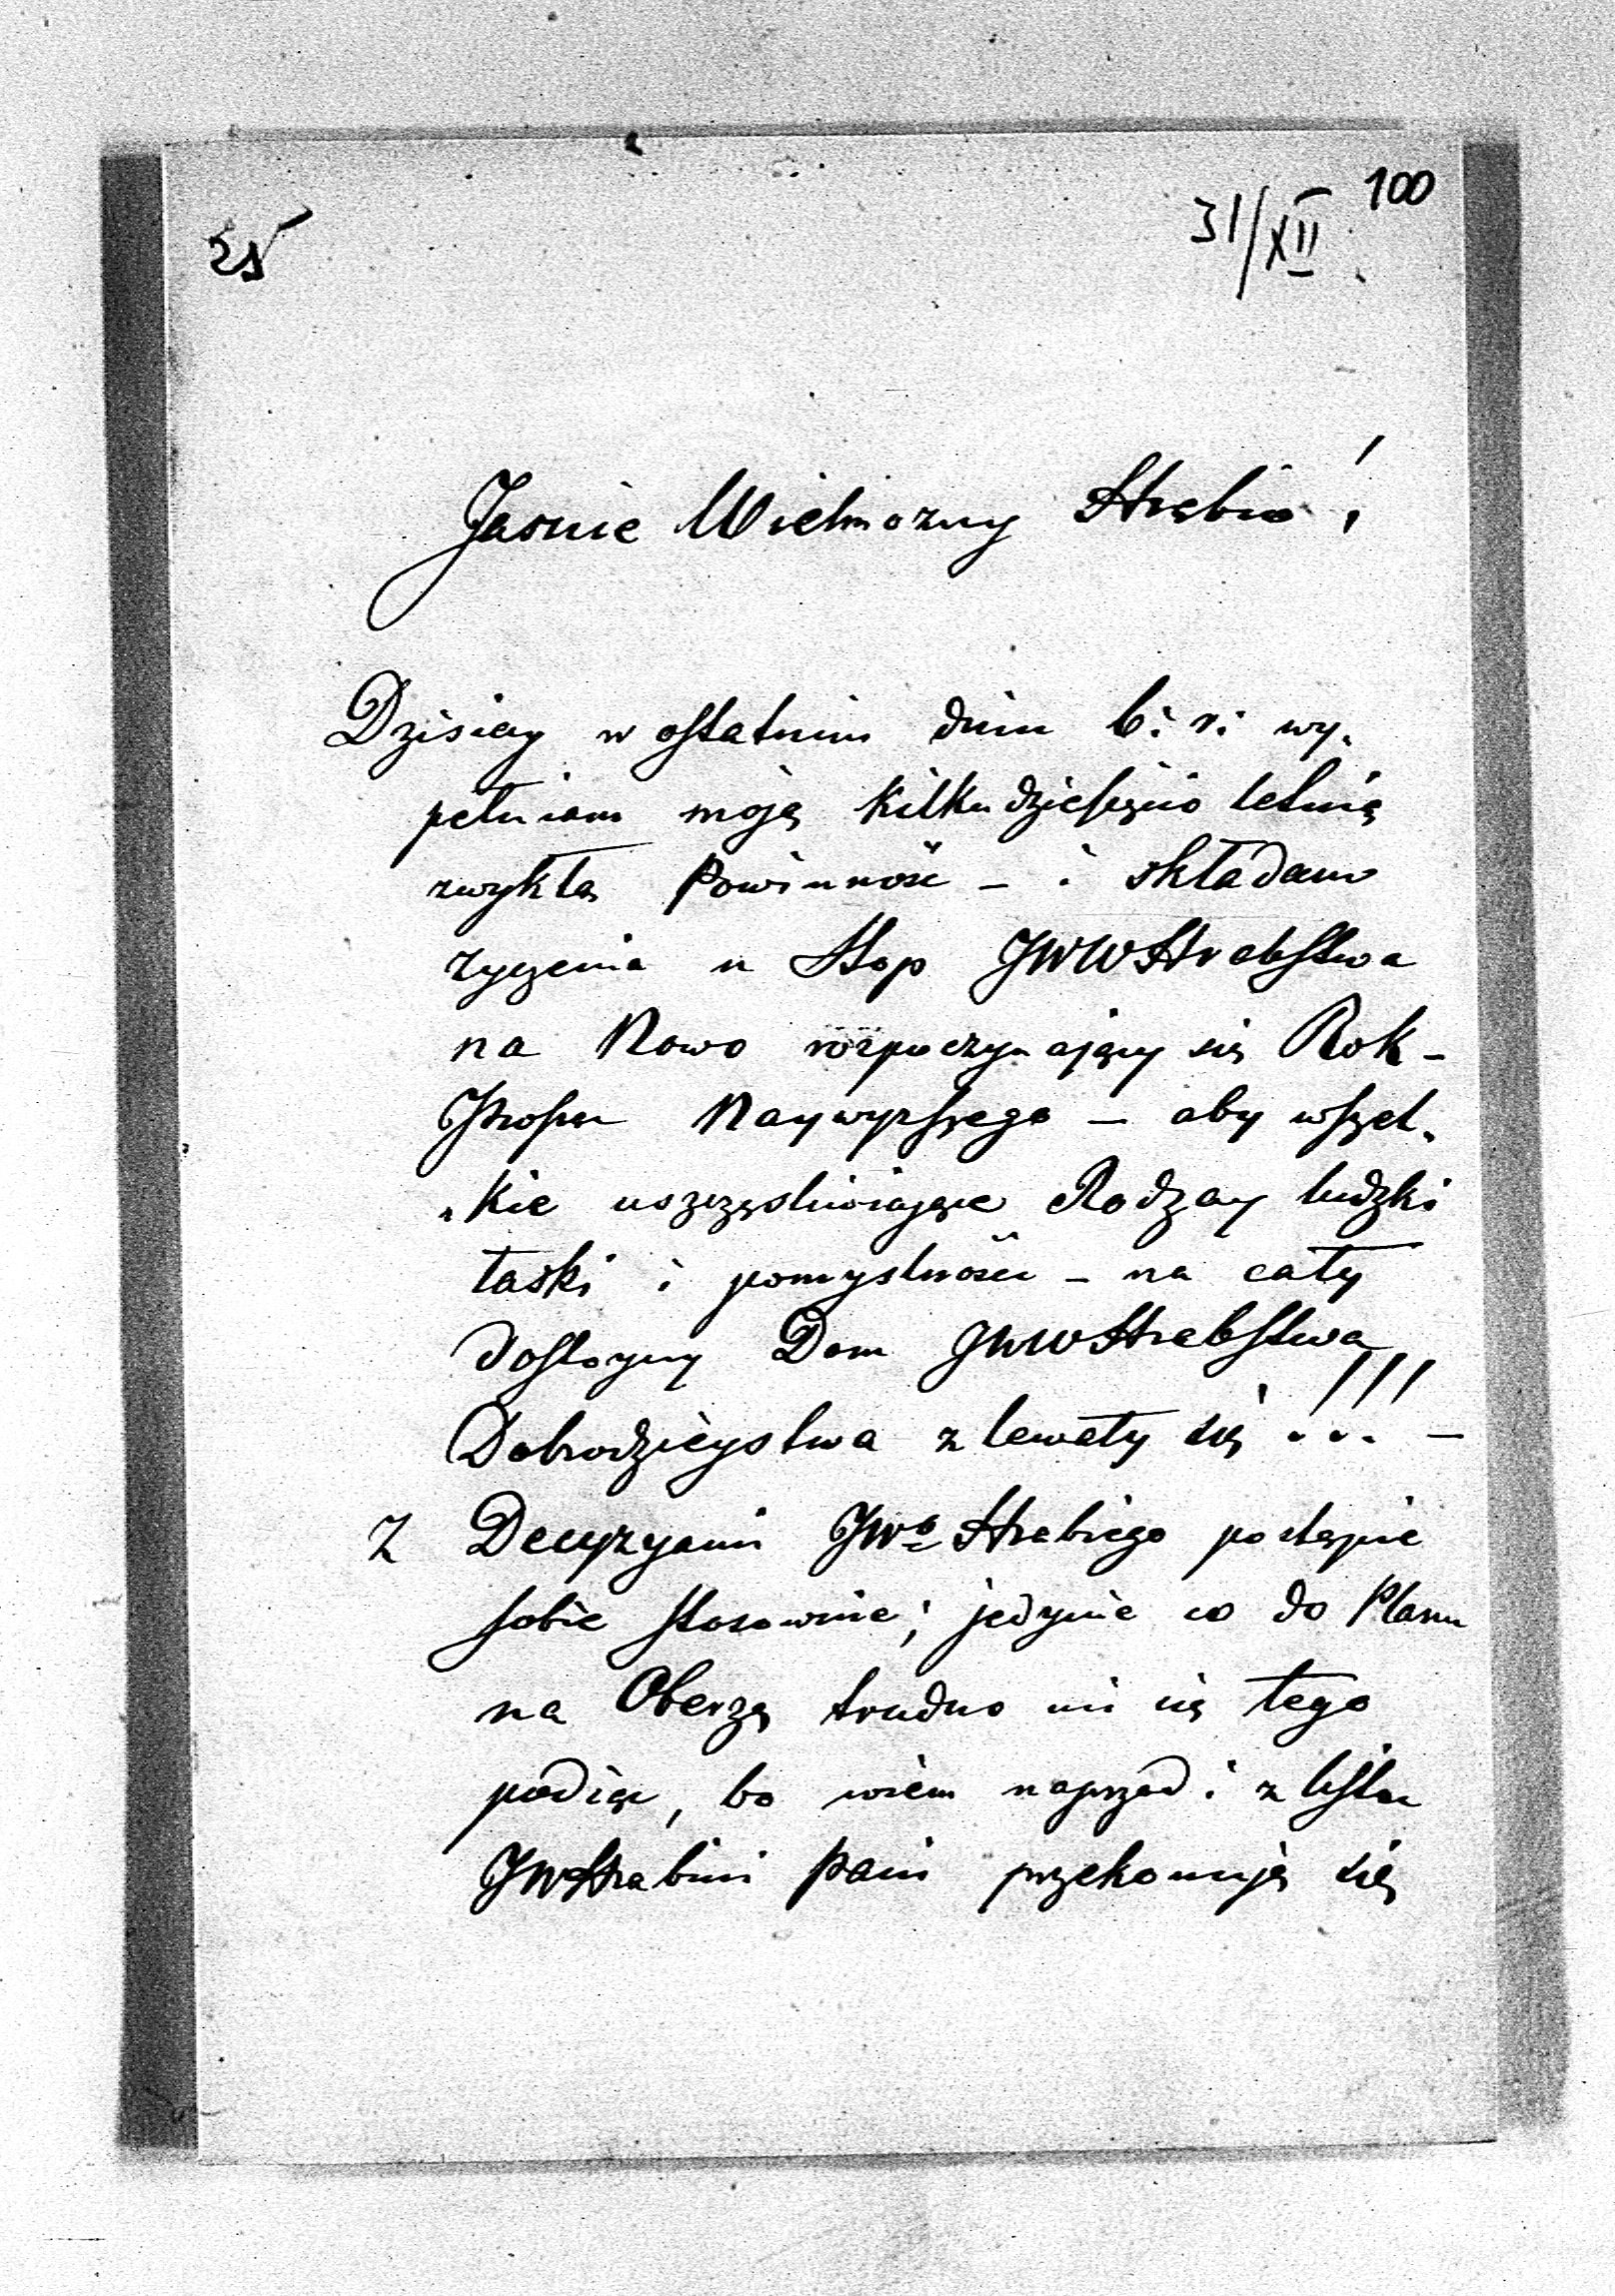 100
31/XII
Jasnie Wielmozny Hrabio!
Dzisiay w ostatnim dniu b: r: wy„
pełniam moją kilkudziesięcio letnią
zwykłą Powinność – i składam
życzenia u Stop JWWHrabstwa
na Nowo rozpoczynający się Rok –
Proszę Naywyższego – aby wszel„
„kie uszczęsliwiające Rodzay ludzki
łaski i pomyslności – na cały
dostoyny Dom JWWHrabstwa
Dobrodzieystwa zlewały się!!! –
Z Decyzyami JWo Hrabiego postąpie
sobie stosownie; jedynie co do Planu
na Oberzą trudno mi się tego
podiąć, bo wiem naprzod i z listu
JWHrabini Pani przekonuję się